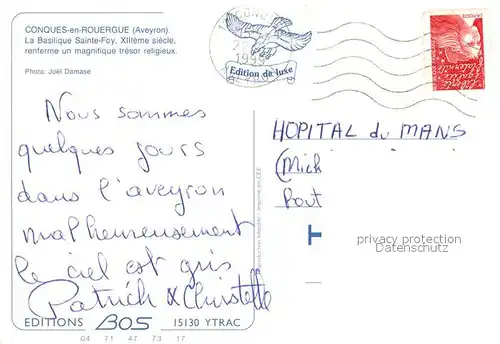 CONQUES-en-ROUERGUE (Aveyron).
La Basilique Sainte-Foy, XIIIème siècle,
renferme un magnifique trésor religieux.
Photo: Joël Damase
Edition de luxe
1999
LA POSTE
Liberté
Egalité
Fraternité
Nous sommes
quelques jours
dans l'aveyron
malheureusement
le ciel est gris
Patrick & Christelle
HOPITAL du MANS
(Mich
Rout
privacy protection
Datenschutz
EDITIONS BOS 15130 YTRAC
04 71 47 73 17